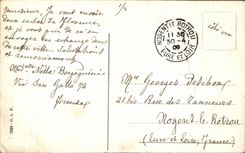 Monsieur, Je vous envoie
deux cartes de Florence
et je vous prie de m'en
envoyer en échange deux
de votre ville. Salutations
et remerciements
Nella
Via San Gallo 73
NOGENT LE ROTROU
11 50
30 - 4
09
EURE ET LOIR
Mr Georges Desiboug
21 bis Rue des Tanneurs
Nogent-le-Rotrou
(Eure et Loir, France)